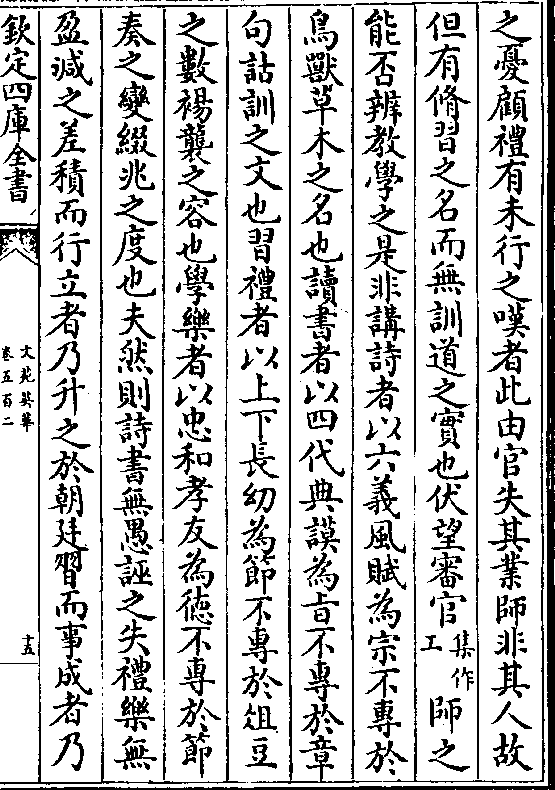 之憂顧禮有未行之嘆者此由官失其業師非其人故
但有脩習之名而無訓道之實也伏望審官集作工師之
能否辨教學之是非講詩者以六義風賦為宗不專於
鳥獸草木之名也讀書者以四代典謨為旨不專於章
句詁訓之文也習禮者以上下長幼為節不專於俎豆
之數裼襲之容也學樂者以忠和孝友為徳不專於節
奏之變綴兆之度也夫然則詩書無愚誣之失禮樂無
盈減之差積而行立者乃升之於朝廷習而事成者乃
欽定四庫全書
文苑英華
卷五百二
十五